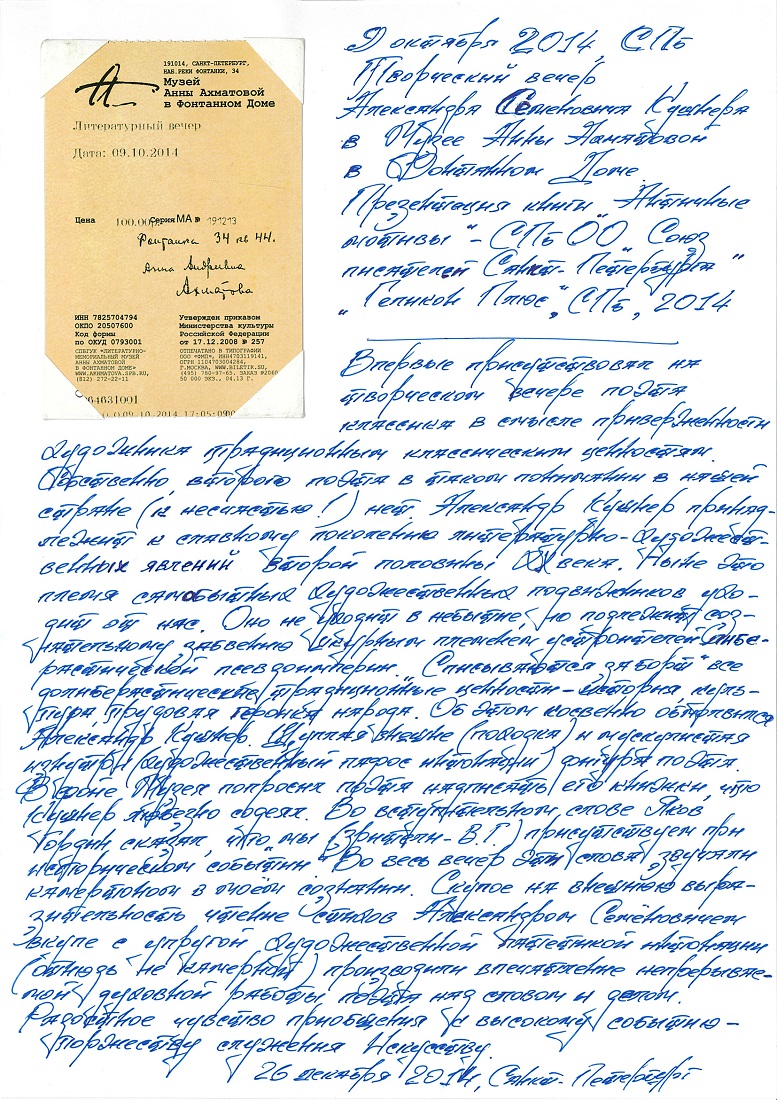 191014, САНКТ-ПЕТЕРБУРГ,
НАБ.РЕКИ ФОНТАНКИ, 34
Музей
Анны Ахматовой
в Фонтанном Доме
Литературный вечер
Дата: 09.10.2014
Цена 100.00р. Серия МА № 191213
Фонтанка 34 кв 44.
Анна Андреевна
Ахматова
ИНН 7825704794
ОКПО 20507600
Код формы
по ОКУД 0793001
СПБГУК «ЛИТЕРАТУРНО-
МЕМОРИАЛЬНЫЙ МУЗЕЙ
АННЫ АХМАТОВОЙ
В ФОНТАННОМ ДОМЕ»
WWW.AKHMATOVA.SPB.RU,
(812) 272-22-11
Утвержден приказом
Министерства культуры
Российской Федерации
от 17.12.2008 № 257
ОТПЕЧАТАНО В ТИПОГРАФИИ
ООО «ФМП», ИНН4703119141,
ОГРН 1104703004284,
Г.МОСКВА, WWW.BILETIK.SU,
(495) 780-97-65. ЗАКАЗ №2060
50 000 ЭКЗ., 04.13 Г.
04631001
09.10.2014 17:05:09
9 октября 2014, СПб
Творческий вечер
Александра Семёновича Кушнера
в Музее Анны Ахматовой
в Фонтанном Доме.
Презентация книги „Античные
мотивы" – СПб ОО „Союз
писателей Санкт-Петербурга"
„Геликон Плюс", СПб, 2014
Впервые присутствовал на
творческом вечере поэта
классика в смысле приверженности
художника традиционным классическим ценностям.
Собственно, второго поэта в таком понимании в нашей
стране (к несчастью!) нет. Александр Кушнер принад-
лежит к славному поколению литературно-художест-
венных явлений второй половины ХХ века. Ныне это
племя самобытных художественных подвижников ухо-
дит от нас. Оно не уходит в небытие, но подлежит соз-
нательному забвению шкурным племенем устроителей либе-
растической псевдоимперии. „Списываются за борт" все
долиберастические традиционные ценности – история, куль-
тура, трудовая героика народа. Об этом косвенно обмолвился
Александр Кушнер. Щуплая внешне (походка) и мускулистая
изнутри (художественный пафос интонации) фигура поэта.
В фойе Музея попросил поэта надписать его книжки, что
Кушнер любезно содеял. Во вступительном слове Яков
Гордин сказал, что „мы (зрители – В.Г.) присутствуем при
историческом событии". Во весь вечер эти слова звучали
камертоном в моём сознании. Скупое на внешнюю выра-
зительность чтение стихов Александром Семёновичем
вкупе с упругой художественной патетикой интонации
(отнюдь не камерной) производили впечатление непрерывае-
мой духовной работы поэта над словом и делом.
Радостное чувство приобщения к высокому событию –
торжеству служения Искусству.
26 декабря 2014, Санкт-Петербург